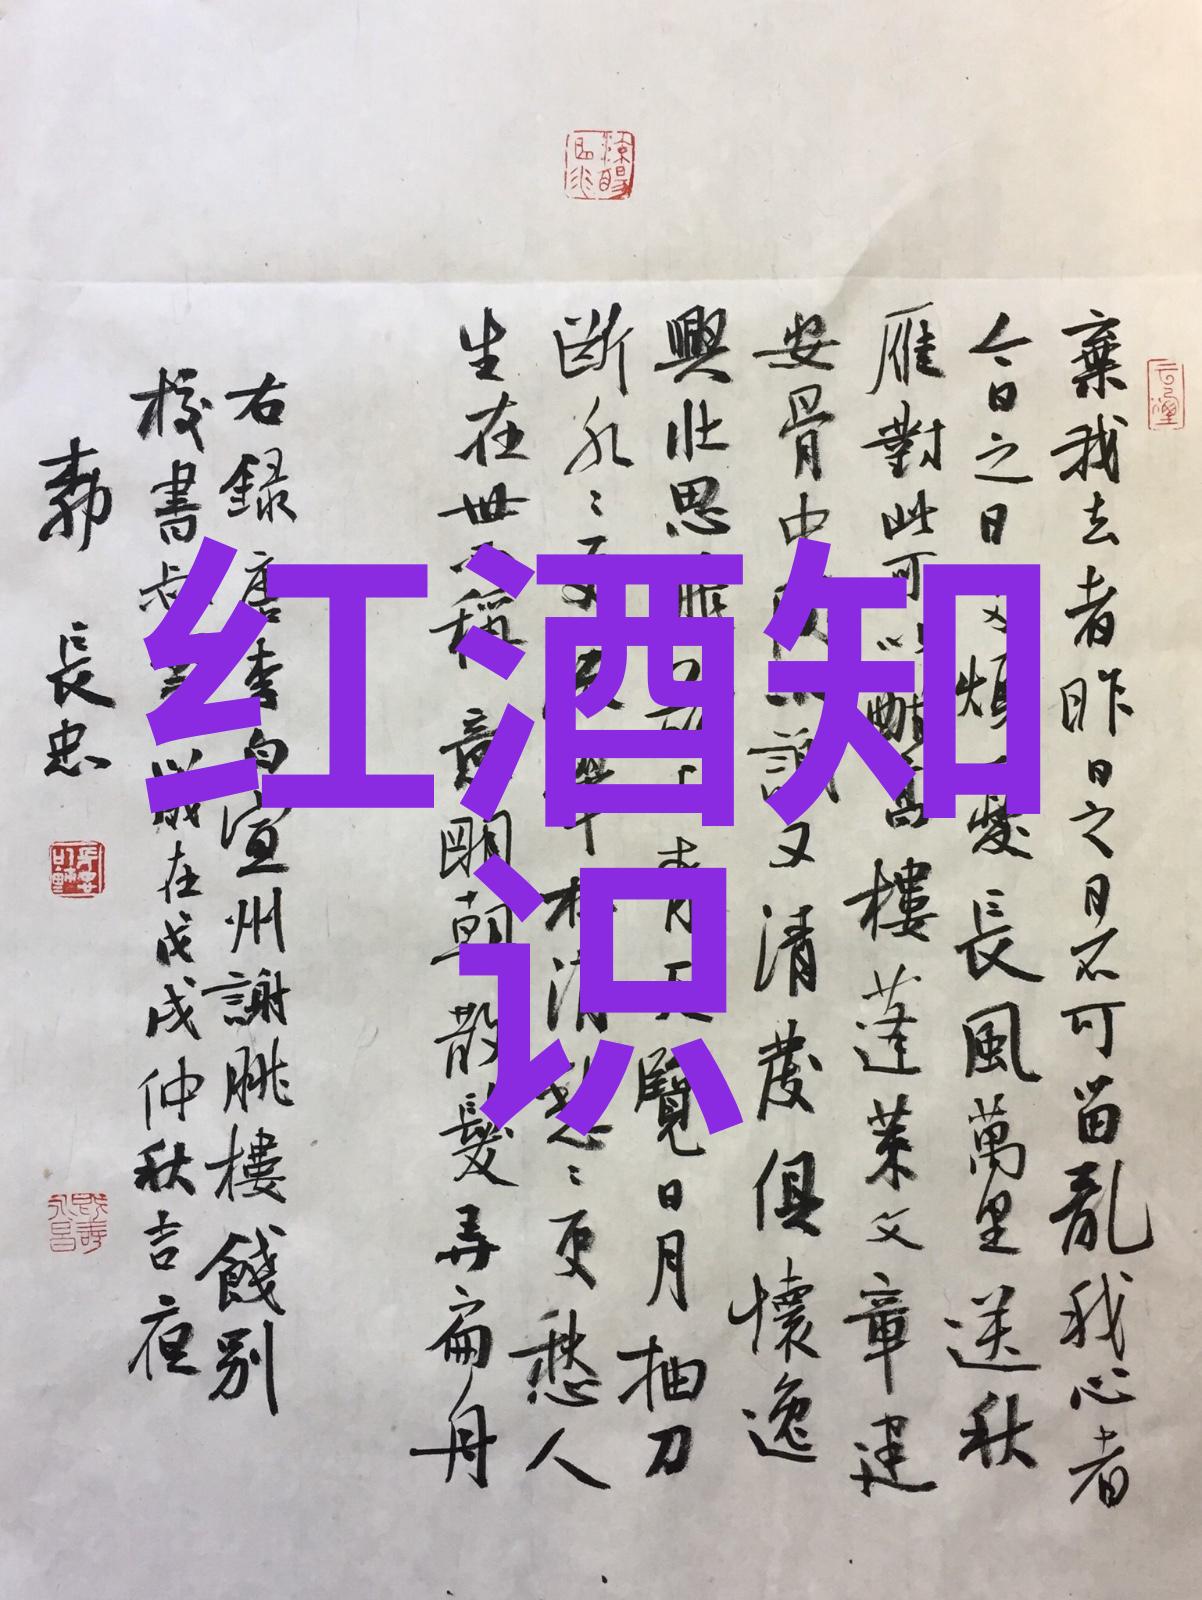 红酒知
识
棄我去者昨日之日不可留亂我心者
今日之日多煩憂長風萬里送秋
雁對此可以酣高樓蓬萊文章建
安骨中間小謝又清發俱懷逸
興壯思飛欲上青天覽日月抽刀
斷水〻更流舉杯消愁〻更愁人
生在世不稱意明朝散髮弄扁舟
右録唐李白宣州謝朓樓餞別
校書叔雲歲在戊戌仲秋吉夜
郭長忠